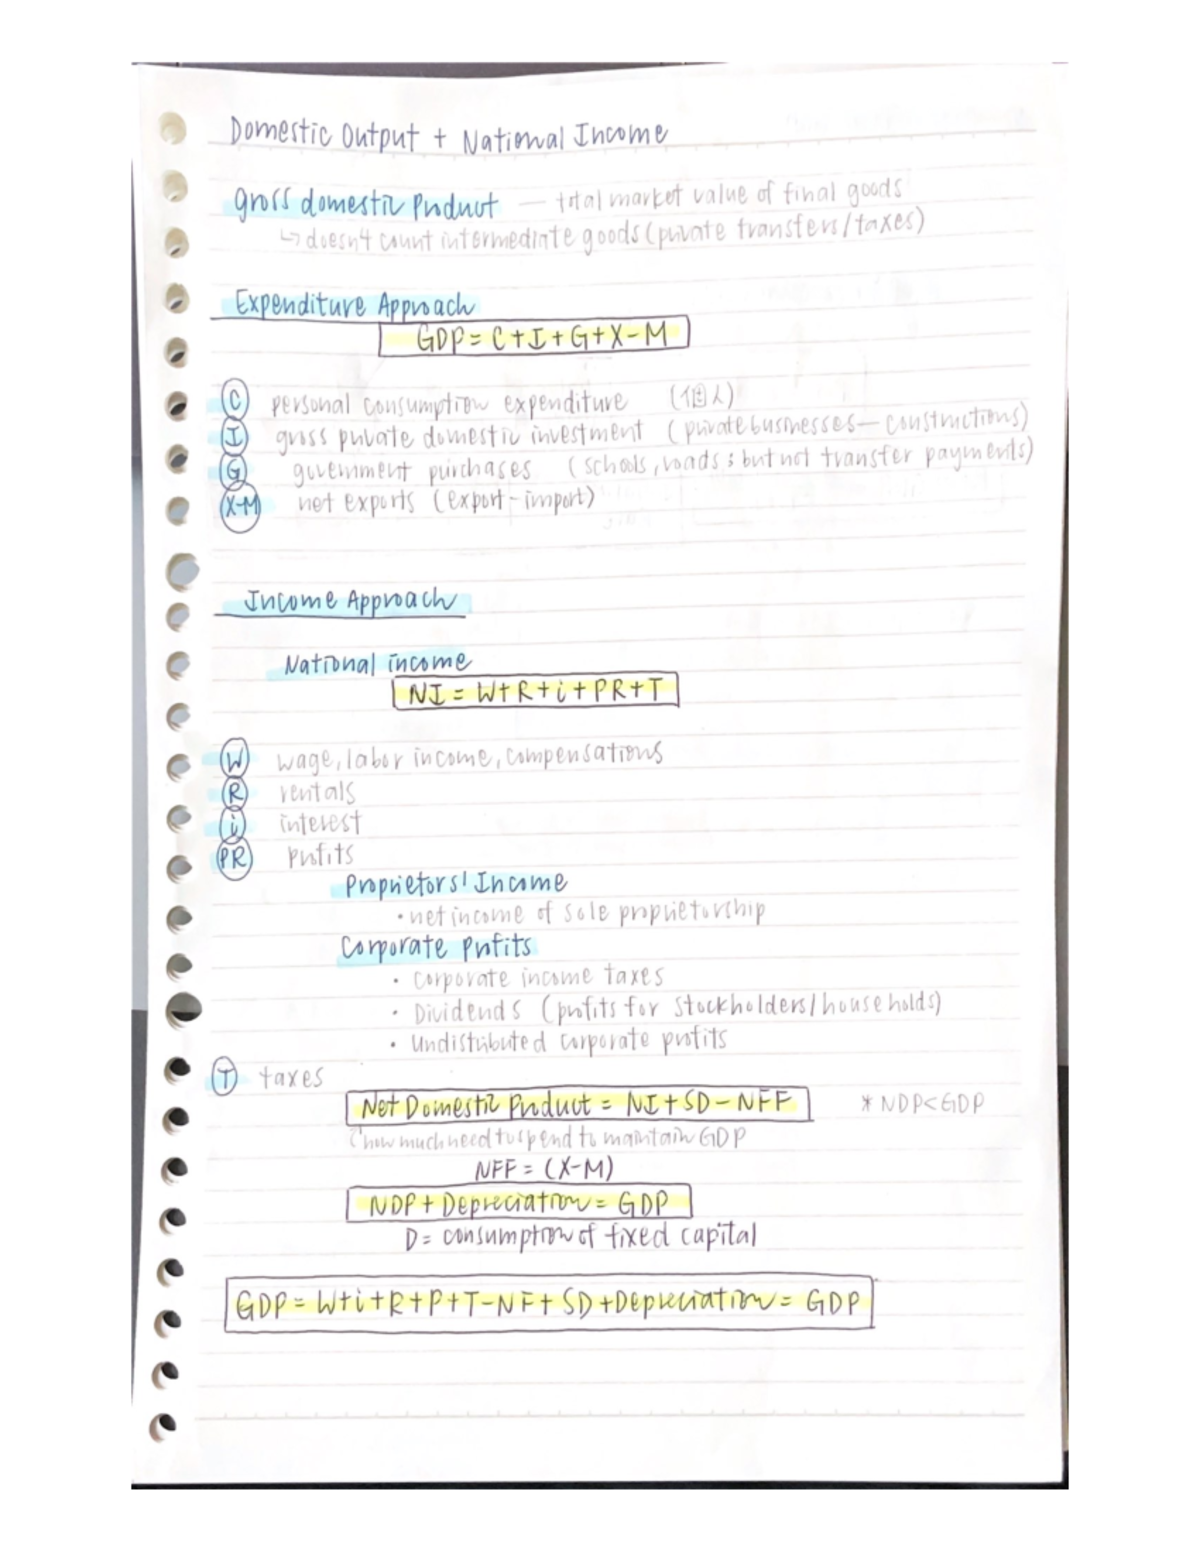 Domestic Output + National Income
gross domestic Product — total market value of final goods
↳ doesn't count intermediate goods (private transfers/taxes)
Expenditure Approach
GDP = C+I+G+X-M
C personal consumption expenditure (個人)
I gross private domestic investment (private businesses—constructions)
G government purchases (schools, roads; but not transfer payments)
X-M net exports (export-import)
Income Approach
National income
NI = W+R+i+PR+T
W wage, labor income, compensations
R rentals
i interest
PR profits
Proprietors' Income
• net income of sole proprietorship
Corporate Profits
• Corporate income taxes
• Dividends (profits for stockholders/households)
• Undistributed corporate profits
T taxes
Net Domestic Product = NI+SD-NFF * NDP<GDP
how much need to spend to maintain GDP
NFF = (X-M)
NDP + Depreciation = GDP
D = consumption of fixed capital
GDP = W+i+R+P+T-NF+SD+Depreciation = GDP